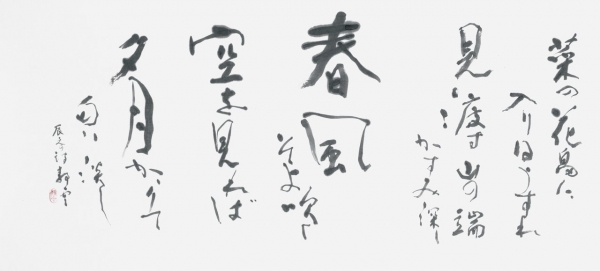 菜の花畠に
入り日うすれ
見渡す山の端
かすみ深し
春風
そよ吹く
空を見れば
夕月かゝりて
匂ひ淡し